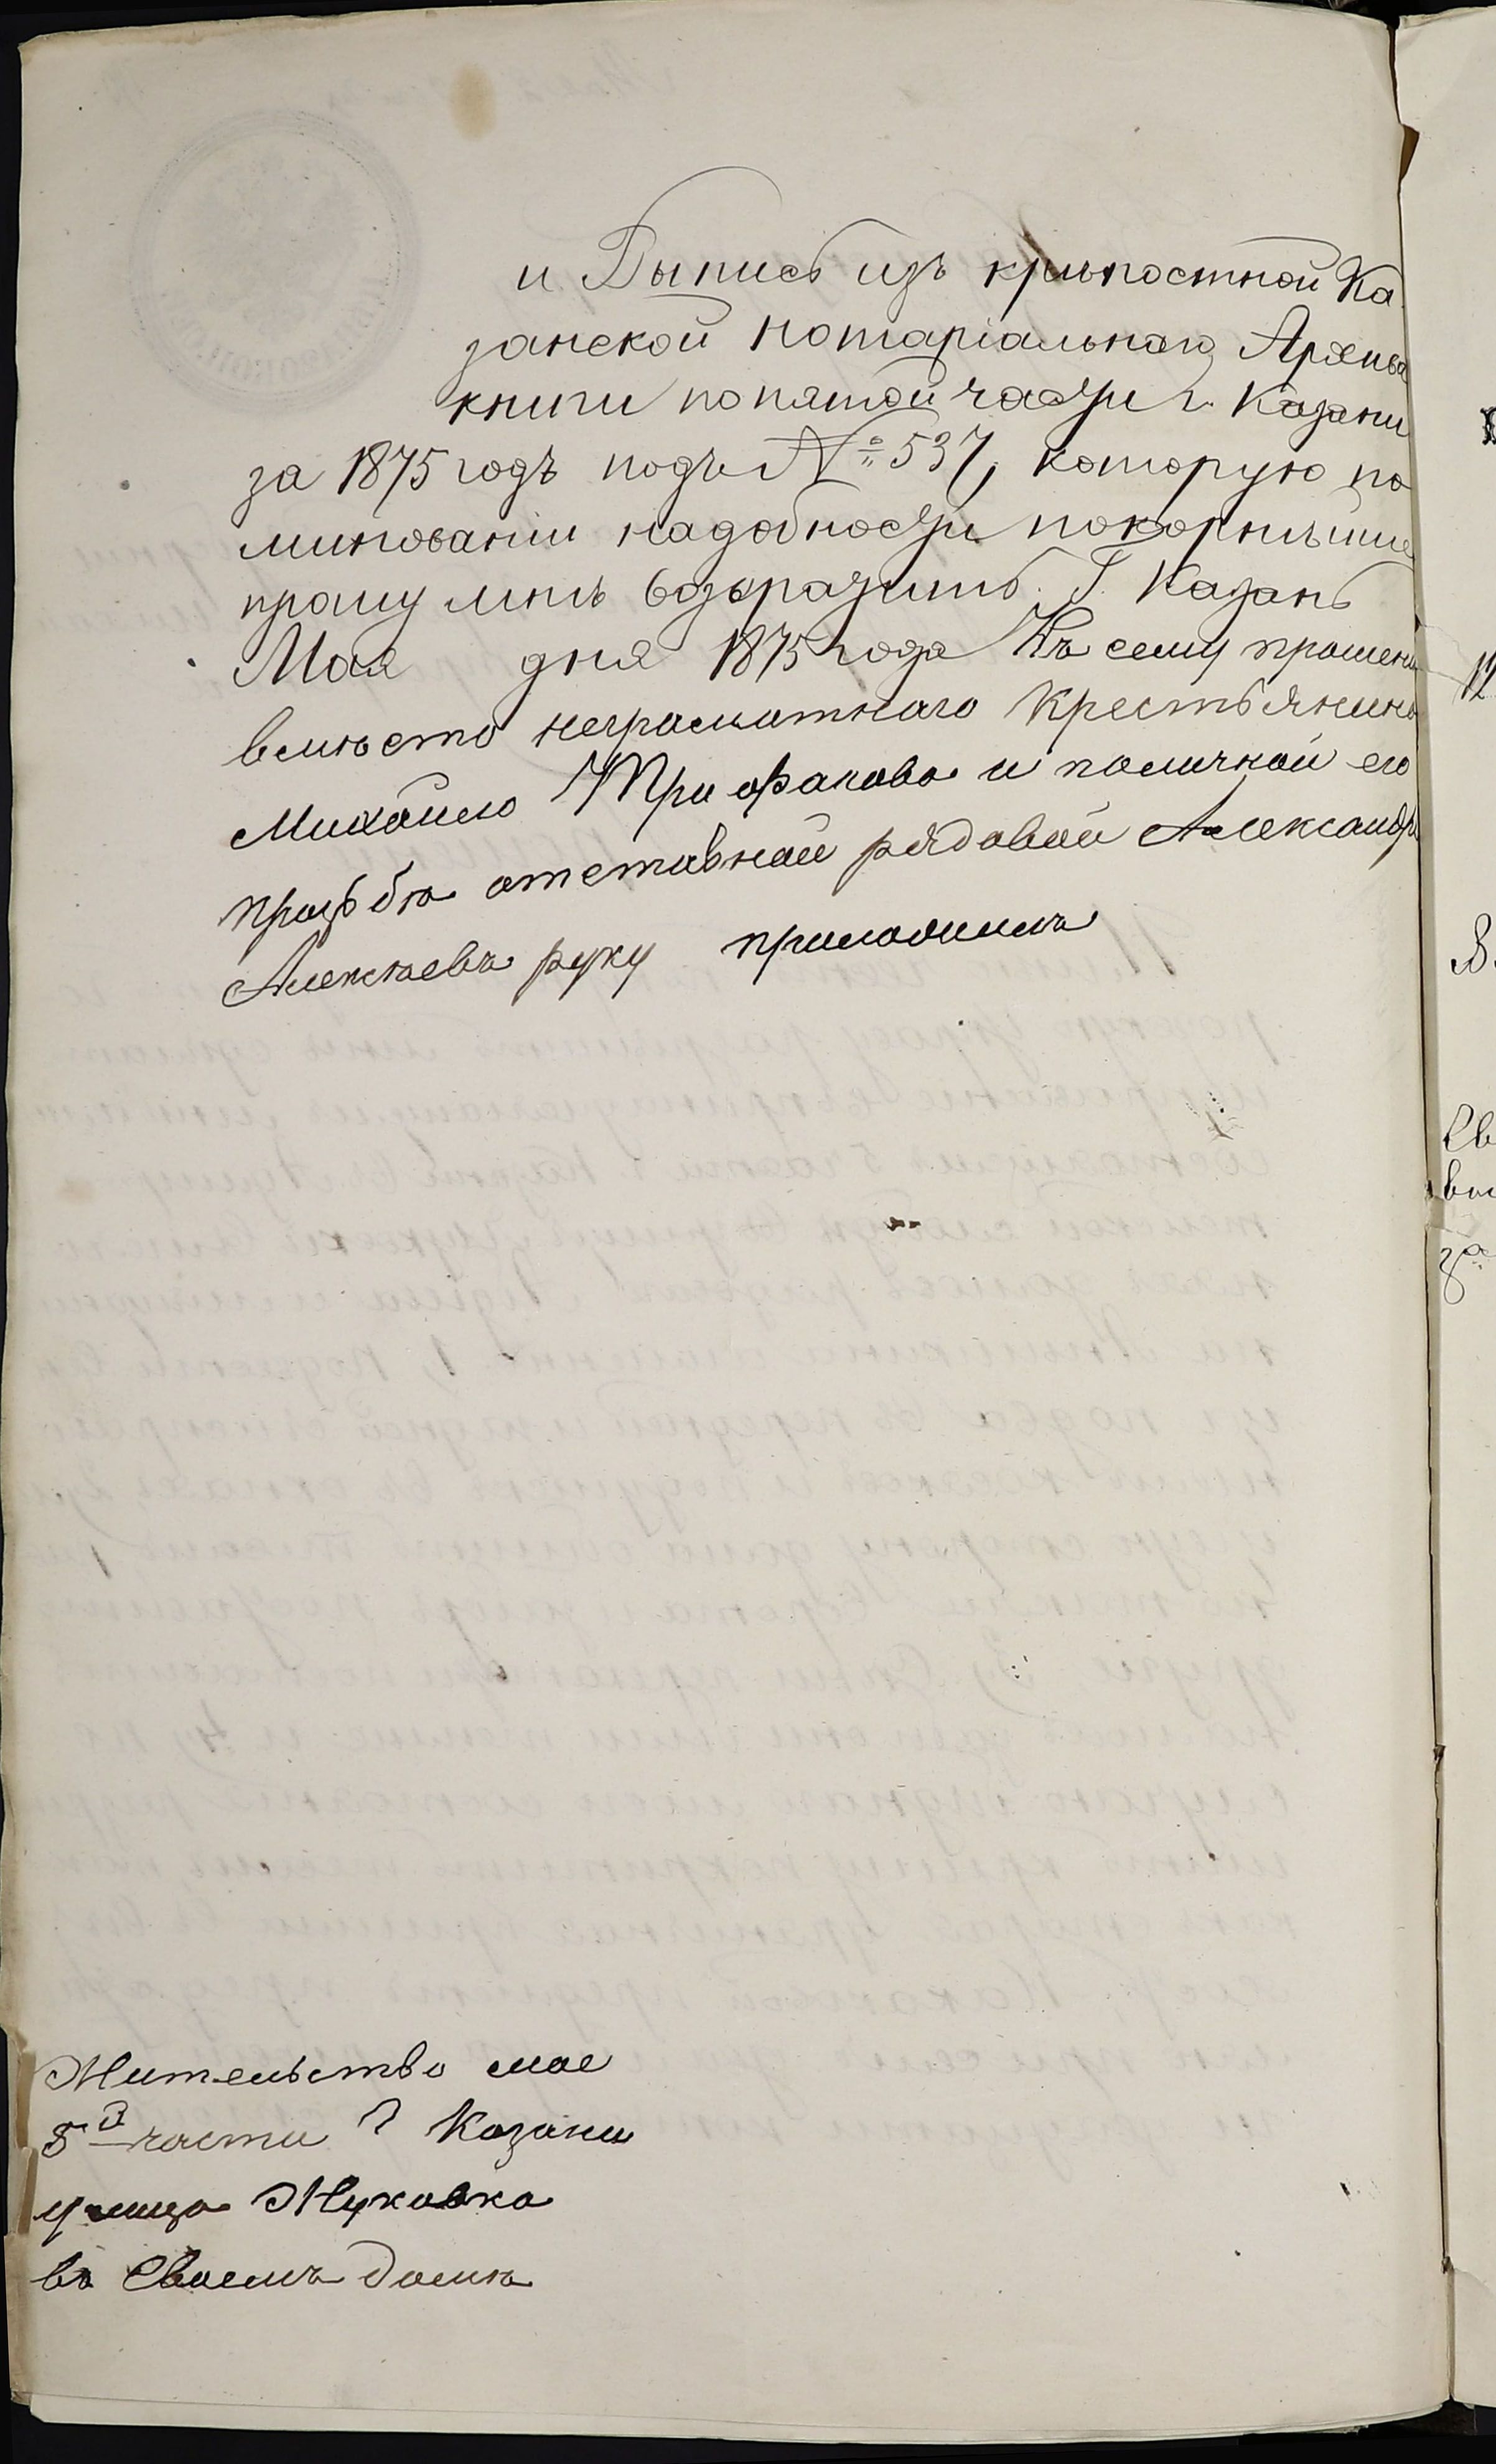 и Выпись изъ крѣпостной Ка
занской Нотаріальнаго Архива
книги по пятой части г. Казани
за 1875 годъ подъ № 537, которую по
минованіи надобности покорнѣйше
прошу мнѣ возвратить. Г. Казань
Мая дня 1875 года Къ сему прошени
вмѣсто неграмотнаго Крестьянина
Михаило Трифанова и поличной его
прозьбѣ отставной рядовой Александр
Алексѣевъ руку приложилъ
Жительство мое
5й части г Казани
улица Жуковка
въ Своемъ домѣ